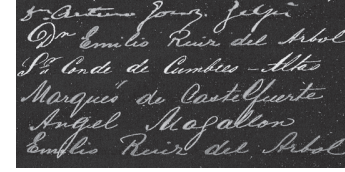 Dn Emilio Ruiz del Arbol
Sr. Conde de Cumbres-Altas
Marqués de Castelfuerte
Angel Magallon
Emilio Ruiz del Arbol